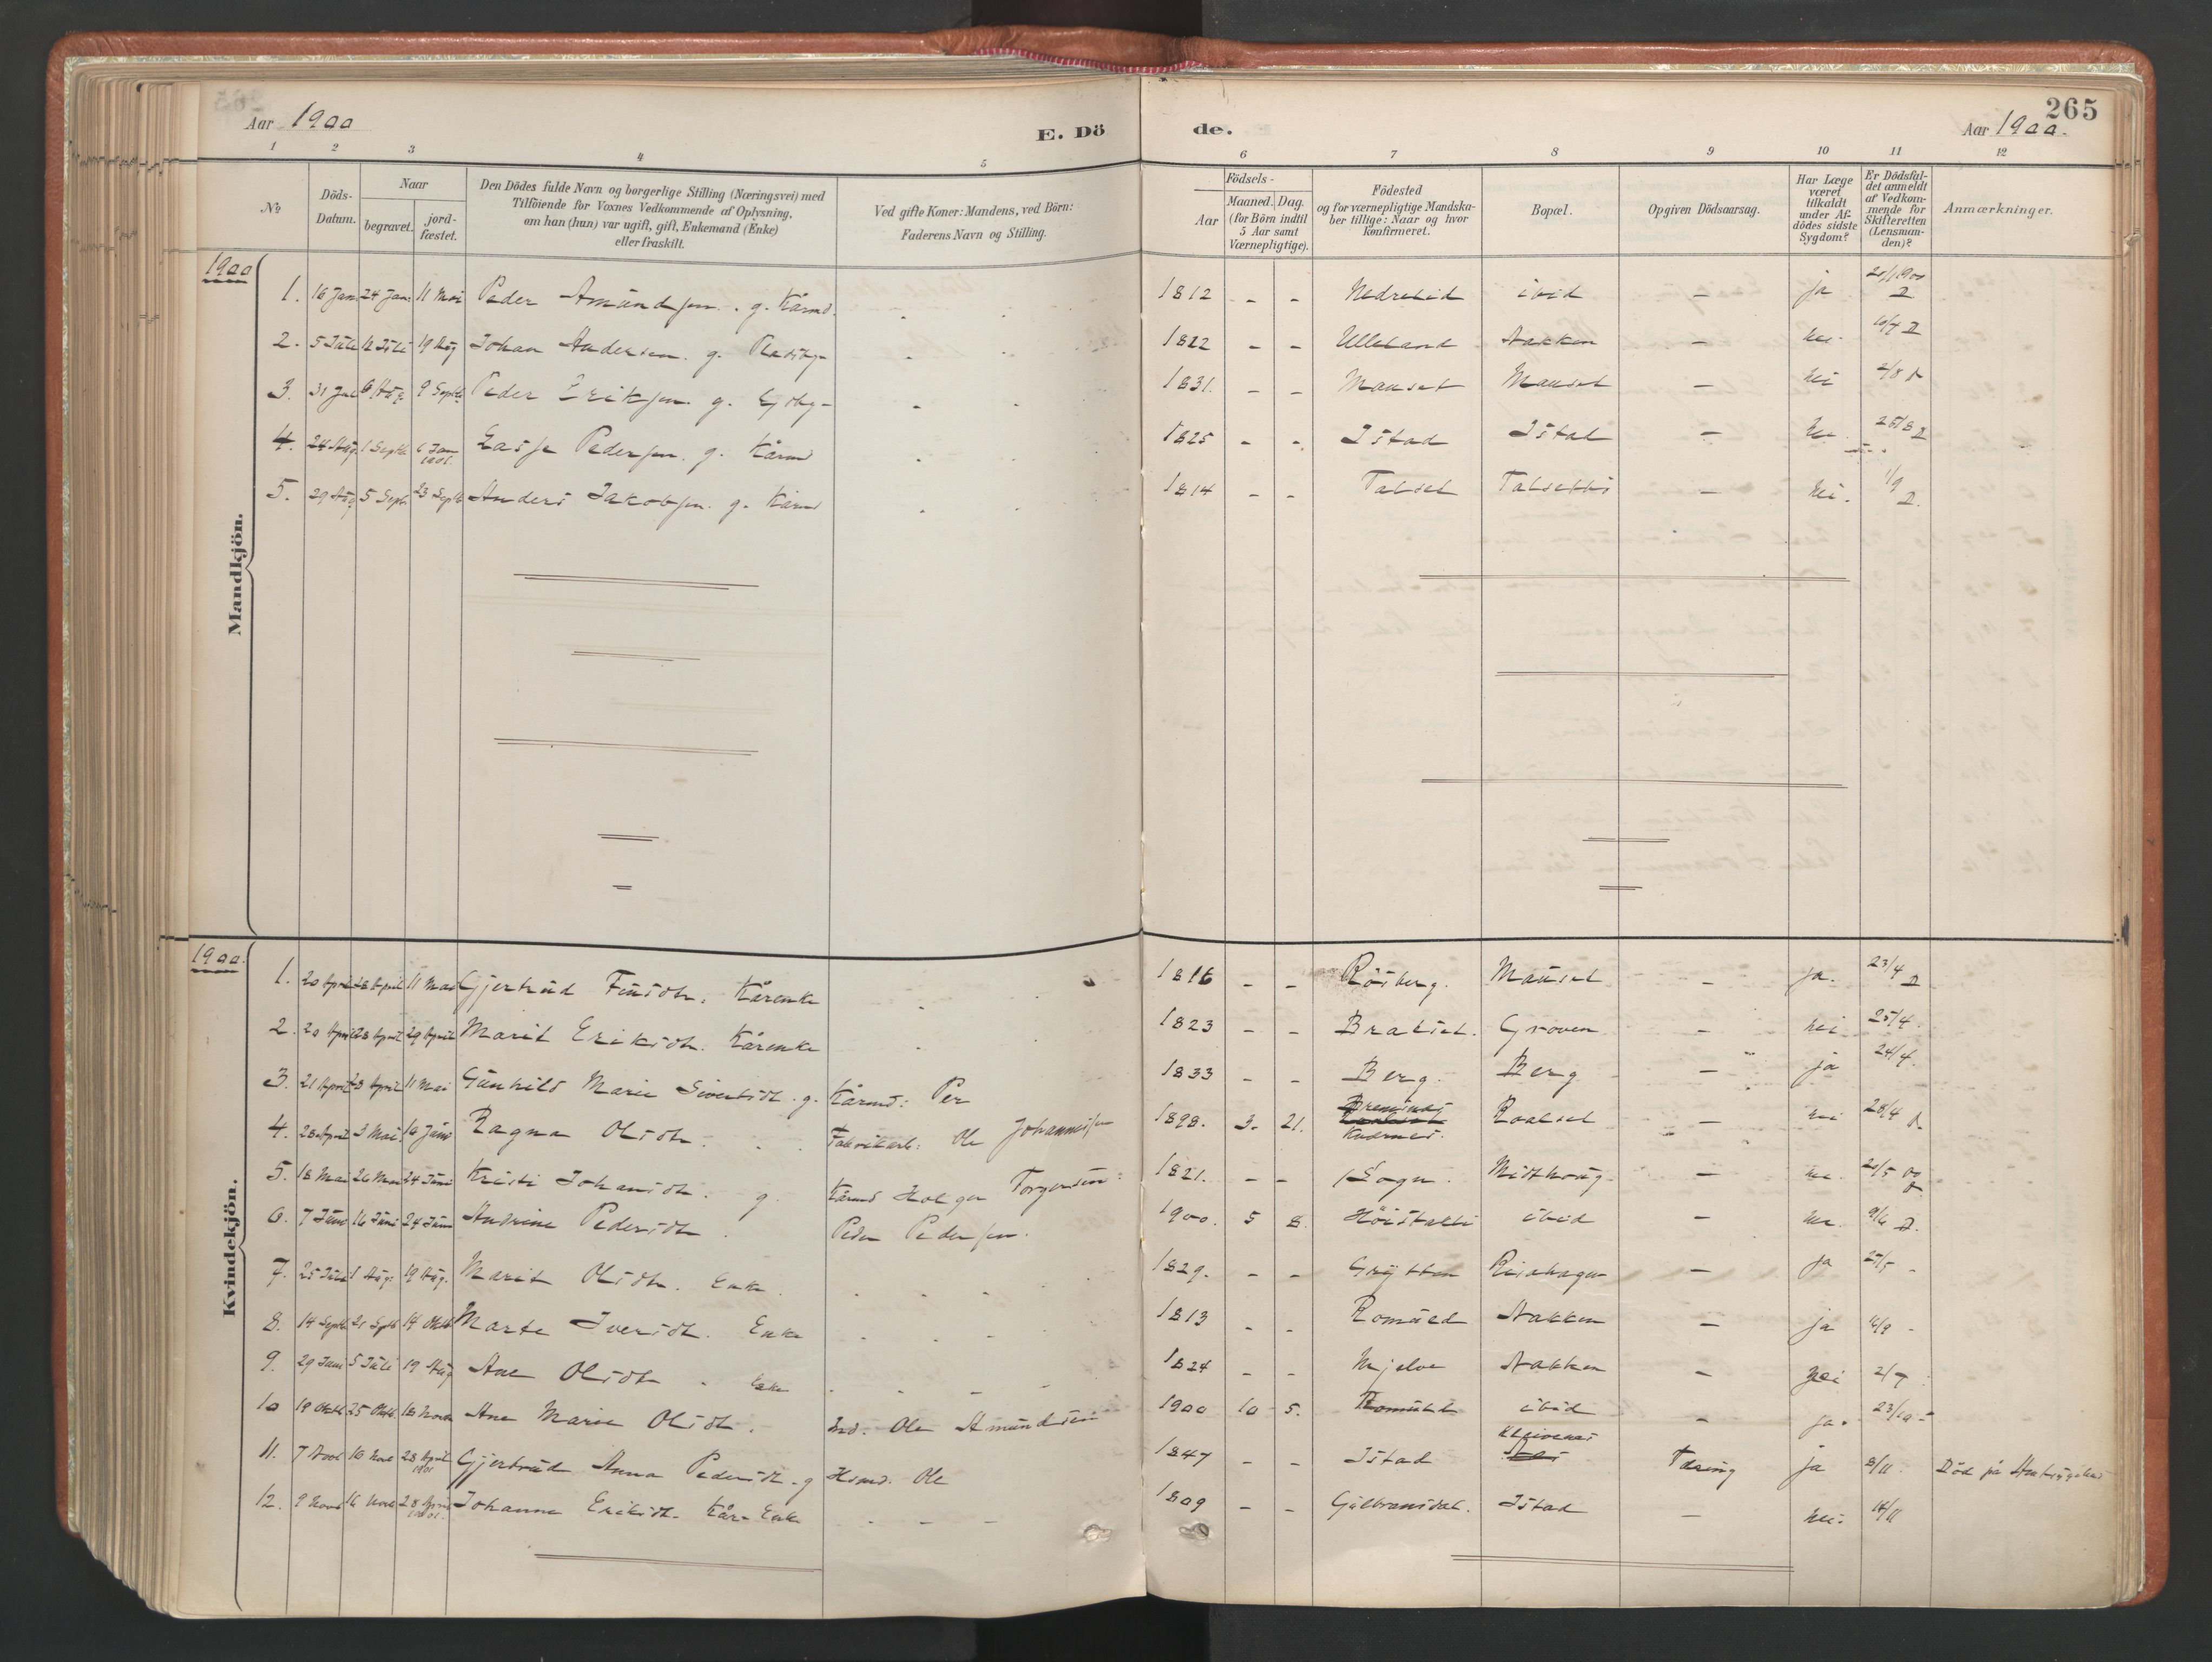 265
Aar 1900
E. Dö
de.
Aar 1900.
1 2 3 4 5 6 7 8 9 10 11 12
No
Döds-Datum.
Naar
begravet.
jord-fæstet.
Den Dödes fulde Navn og borgerlige Stilling (Næringsvei) med
Tilföiende for Voxnes Vedkommende af Oplysning,
om han (hun) var ugift, gift, Enkemand (Enke)
eller fraskilt.
Ved gifte Koner: Mandens, ved Börn:
Faderens Navn og Stilling.
Födsels-
Aar
Maaned. Dag.
(for Börn indtil
5 Aar samt
Værnepligtige).
Födested
og for værnepligtige Mandska-
ber tillige: Naar og hvor
konfirmeret.
Bopæl.
Opgiven Dödsaarsag.
Har Læge
været
tilkaldt
under Af-
dödes sidste
Sygdom?
Er Dödsfal-
det anmeldt
af Vedkom-
mende for
Skifteretten
(Lensman-
den)?
Anmærkninger.
Mandkjön.
1900
1. 16 Jan 24 Jan 11 Mai Peder Amundsen. g. Kårmd. 1812 - - Nedrelid ibid - ja
2. 5 Juli 12 Juli 19 Aug Johan Andersen. g. 1822 - - Ulleland Nakken - nei 10/7
3. 31 Jul 6 Aug 9 Septb Peder Eriksen g. 1831. - - Mauset Mauset - nei 2/8
4. 24 Aug 1 Septb 6 Jan 1901. Lasse Pedersen. g. Kårmd 1825 - - Istad Istad - nei 25/8
5. 29 Aug 5 Sept. 23 Septb Anders Jakobsen. g. Kårmd 1814 - - Talset Talsethi - nei. 1/9
Kvindekjön.
1900.
1. 20 April 28 April 11 Mai Gjertrud Finsdtr. Kårenke 1816 - - Röiberg. Mauset - ja. 23/4
2. 20 April 28 April 29 April Marit Eriksdtr. Kårenke 1823 - - Bratset. Groven - nei 25/4.
3. 21 April 28 April 11 Mai Gunhild Marie Sivertsdt. g. Kårmd: Per 1833 - - Berg. Berg - ja 24/4.
4. 28 April 3 Mai 16 Juni Ragna Olsdtr. Ole Johannessen 1898. 3. 21. Roalset - nei 28/4
5. 18 Mai 26 Mai 24 Juni Kristi Johansdtr. g. Kårmd Holger Torgersen: 1821. - - Sogn. Midthaug - nei. 20/5
6. 7 Juni 16 Juni 24 Juni Andrine Pedersdtr Peder Pedersen. 1900. 5 8. ibid - nei. 9/6
7. 25 Juli 1 Aug. 19 Aug. Marit Olsdtr. Enke. 1829. - - Grytten - ja
8. 14 Septb 21 Septb 14 Oktb Marte Iversdtr. Enke 1813 - - Romuld Nakken - ja
9. 29 Juni 5 Juli 19 Aug Ane Olsdtr. Enke 1824 - - Mjelve Nakken - nei 2/7
10 19 Oktb 25 Oktb. 18 Novb Ane Marie Olsdtr. Ole Amundsen 1900 10 5. Romuld ibid - ja. 23/10
11. 7 Novb 10 Novb 28 April 1901 Gjertrud Anna Pedersdt. g Hsmd. Ole 1847 - - Istad Kleivenes Tæring ja 8/11. Död på Amtssygehus
12. 9 Novb 16 Novb 28 April 1901. Johanna Eriksdt. Kår-Enke 1809 - - Gulbransdal. Istad - nei. 14/11